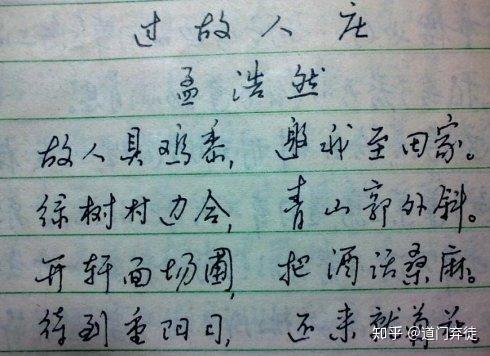 过故人庄
孟浩然
故人具鸡黍，邀我至田家。
绿树村边合，青山郭外斜。
开轩面场圃，把酒话桑麻。
待到重阳日，还来就菊花
知乎 @道门弃徒